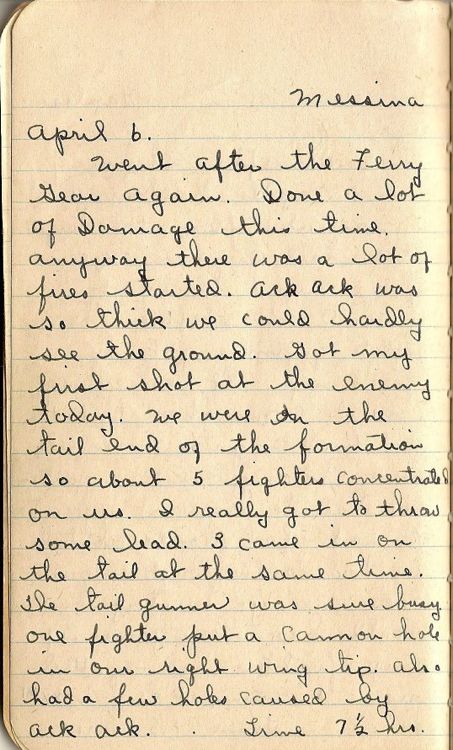 Messina
April 6.
Went after the Ferry
Gear again. Done a lot
of Damage this time.
anyway there was a lot of
fires started. Ack Ack was
so thick we could hardly
see the ground. Got my
first shot at the enemy
today. We were on the
tail end of the formation
so about 5 fighters concentrated
on us. I really got to throw
some lead. 3 came in on
the tail at the same time.
The tail gunner was sure busy
one fighter put a cannon hole
in our right wing tip. also
had a few holes caused by
ack ack. . Time 7½ hrs.